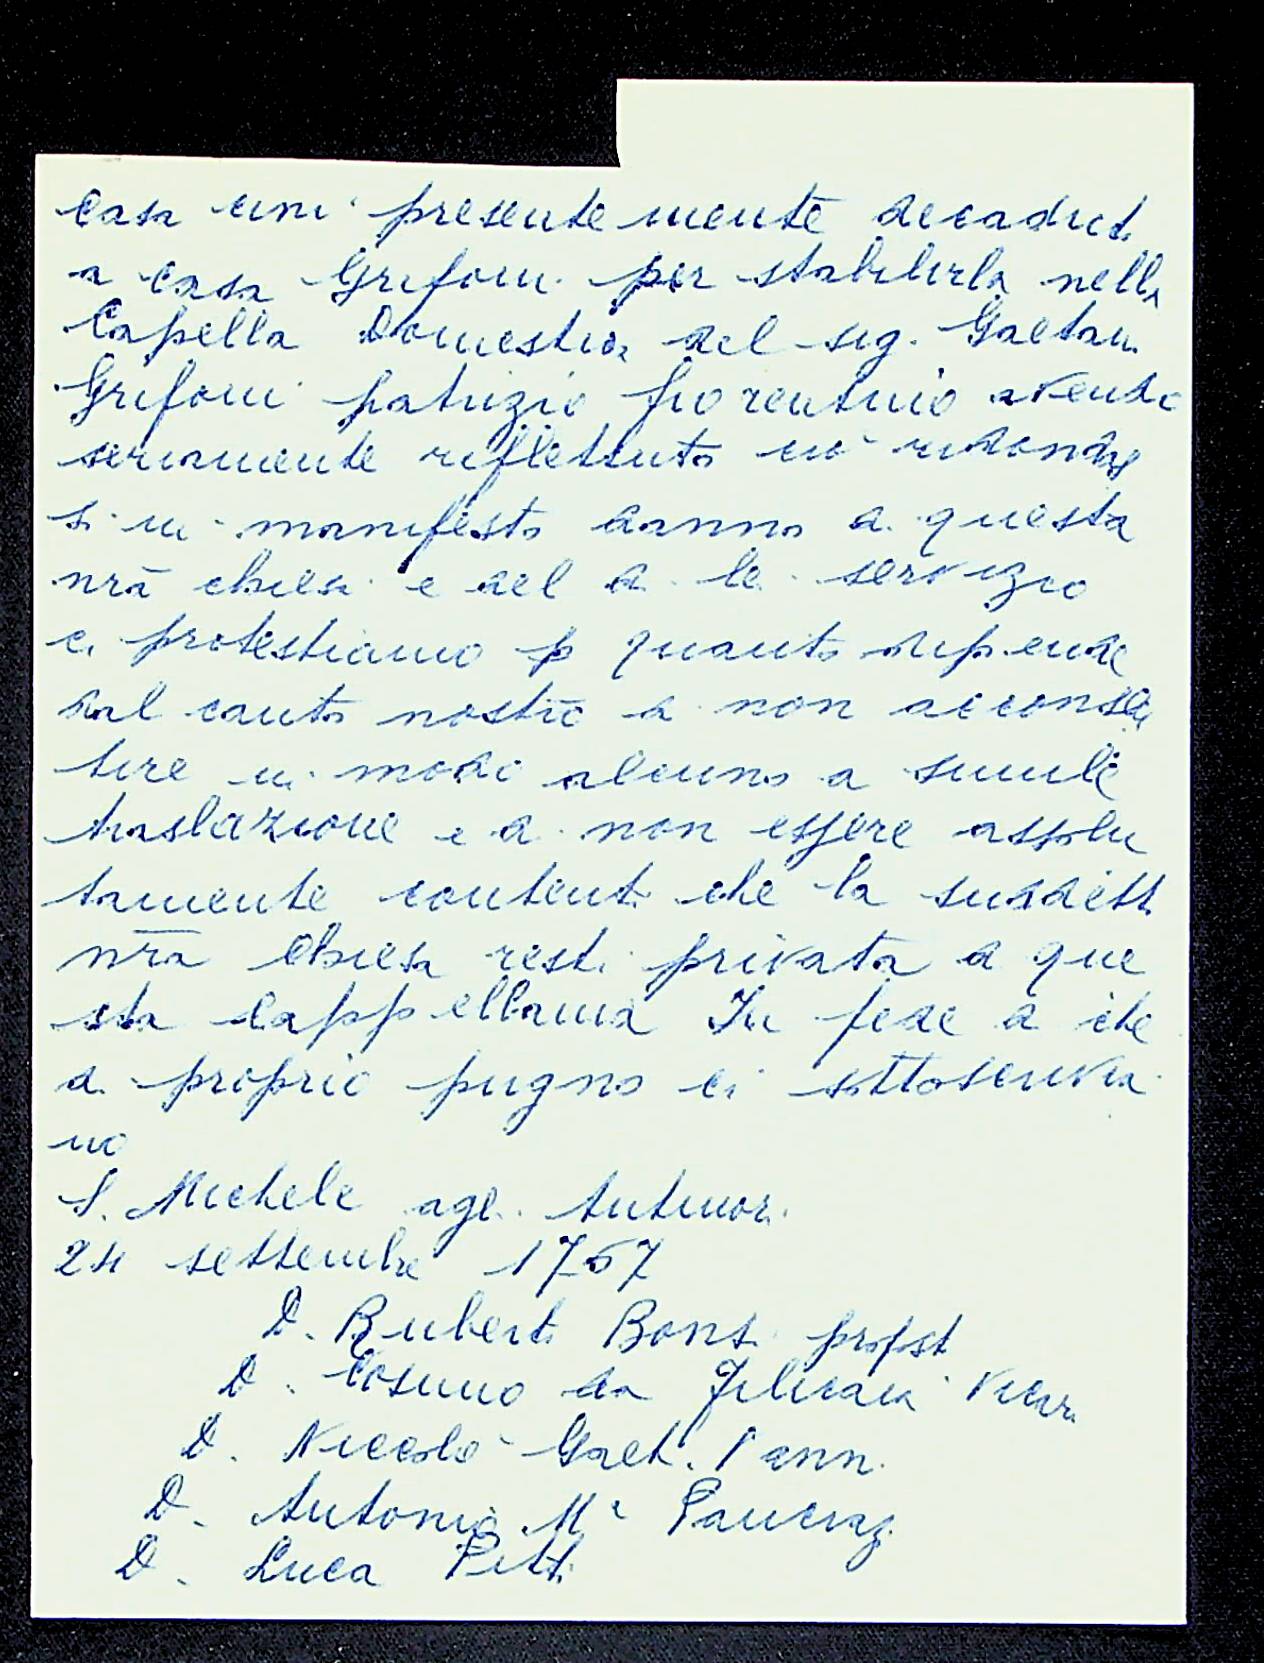 casa uni presentemente decaduti
a casa Grifoni per stabilirla nella
Capella Domestica del sig. Gaetan
Grifoni patrizio fiorentino avendo
seriamente riflettuto ciò ridondare
si in manifesto danno a questa
nrā chiesa e del di le servizio
ci protestiamo p quanto dipende
dal canto nostro di non acconsen
tire in modo alcuno a simile
traslazione e di non essere assolu
tamente contenti che la suddett
nrā Chiesa resti privata di que
sta cappellania In fede di che
di proprio pugno ci sottoscrivia
mo
S. Michele agl. Antinor.
24 settembre 1767
D. Rubert Bonsi propst
D. Cosimo da Filicaia Vicar.
D. Niccolo Gaet.
D. Antonio Mª Pancraz.
D. Luca Pitti